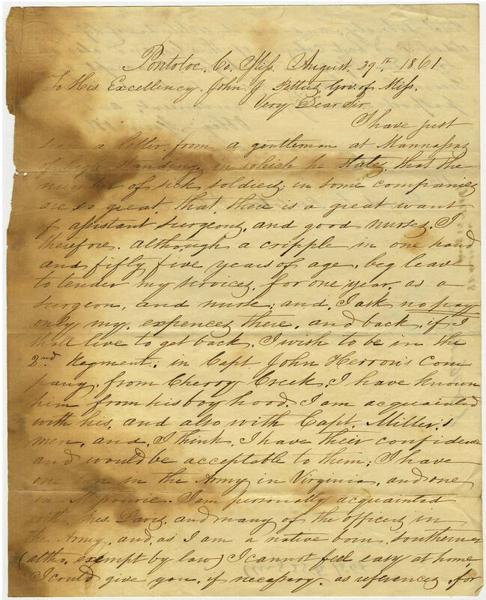 Pontotoc, Co, Miss, August, 29th 1861
To His Excellency, John J Pettus Gov. of Miss,
Very Dear Sir
I have just
a letter, from a gentleman at Mannassas
in which he states, that the
number of sick soldiers, in some companies
are so great, that there is a great want
of assistant surgeons, and good nurses, I
therefore, although a cripple in one hand
and fifty five years of age, beg leave
to tender my services, for one year, as a
surgeon, and nurse; and, I ask no pay
only my expences there, and back, if I
shall live to get back, I wish to be in the
2nd Regment, in Capt John Herron's Com
pany, from Cherry Creek, I have known
him from his boyhood, I am acquainted
with his, and also with Capt, Miller's
men, and I think I have their confidence
and would be acceptable to them; I have
one in the Army in Virginia, and one
I am personally acquainted
with Pres Davis, and many of the officers in
the Army, and, as I am a native born southerner
(altho, exempt by law) I cannot feel easy at home
I could give you, if necessary, as references, for